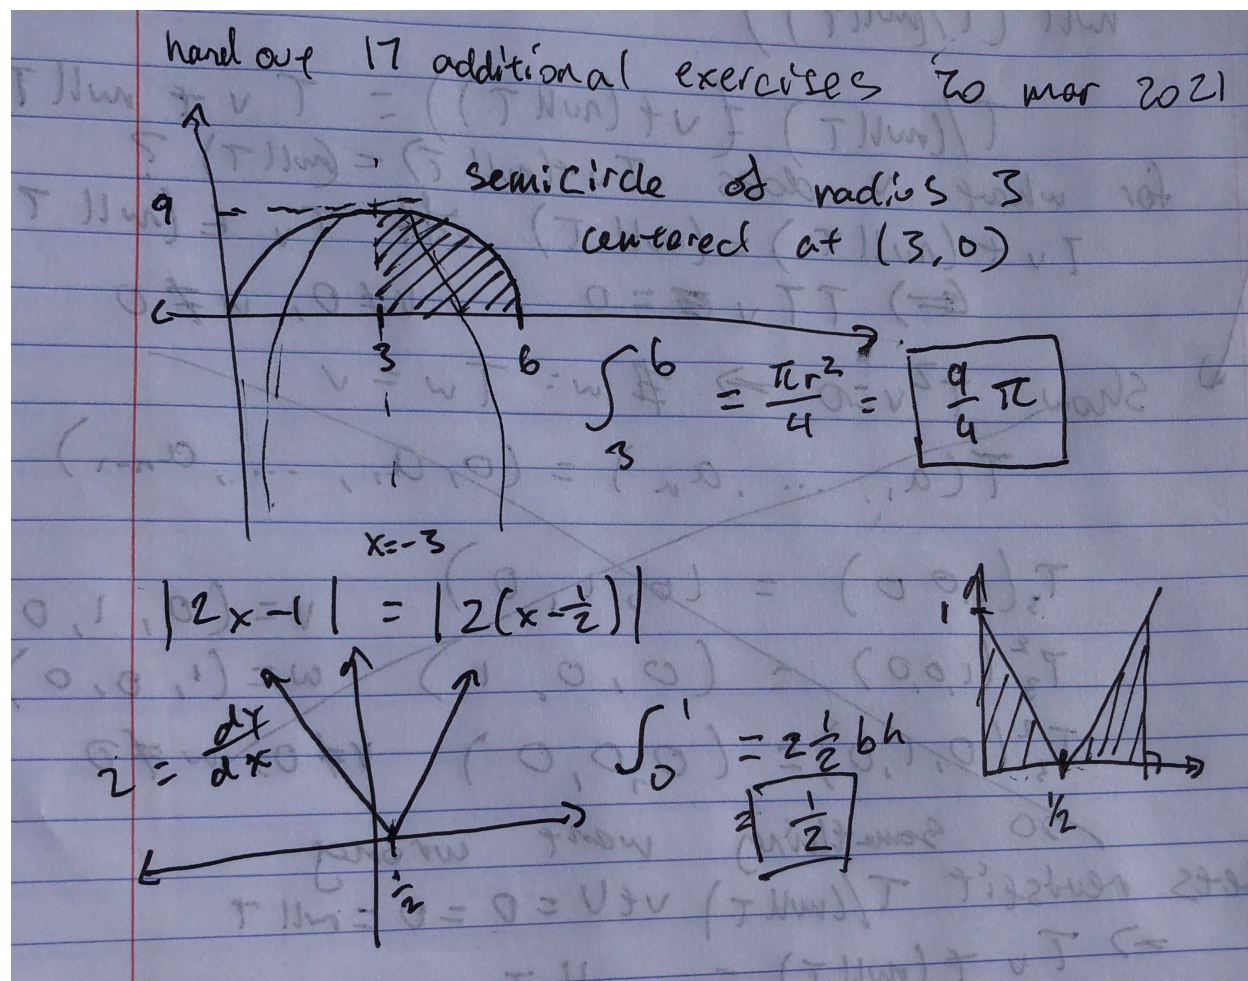 hand out 17 additional exercises 20 mar 2021
semicircle of radius 3
centered at (3,0)
9
3
6
∫₃⁶ = πr²/4 = 9/4 π
x=-3
|2x-1| = |2(x-½)|
2 = dy/dx
½
∫₀¹ = 2 ½ bh
= ½
1
½